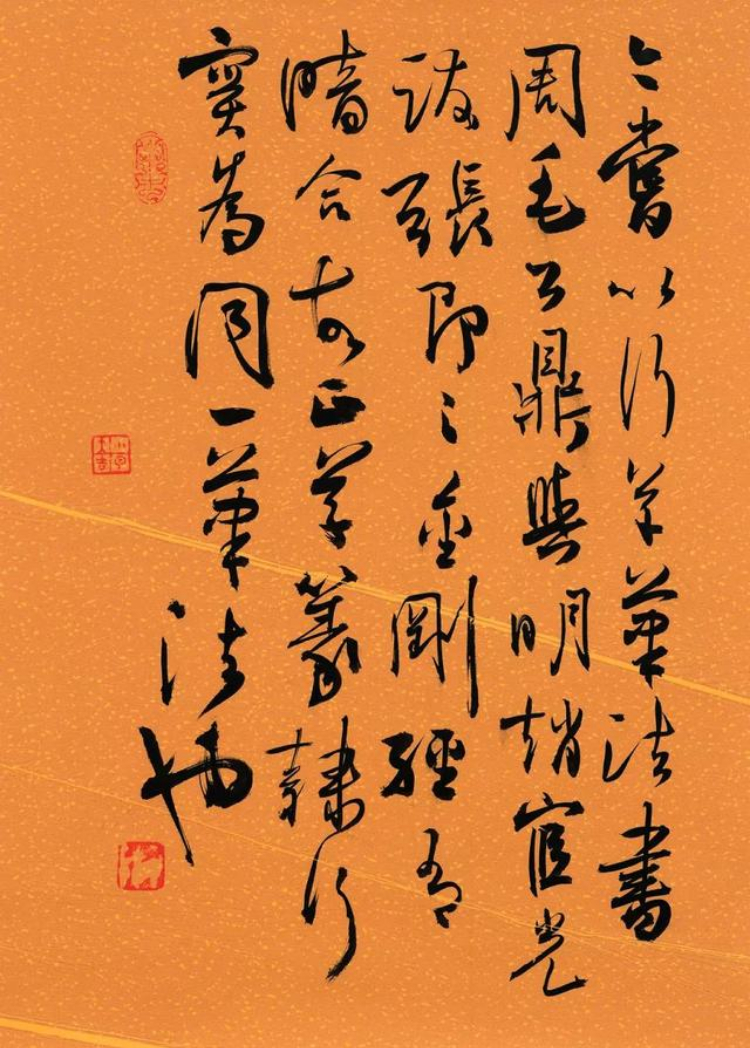 嘗以行草筆法書
周毛公鼎與明趙宧光
跋張即之金剛經有
暗合故正草篆隸行
實為同一筆法也